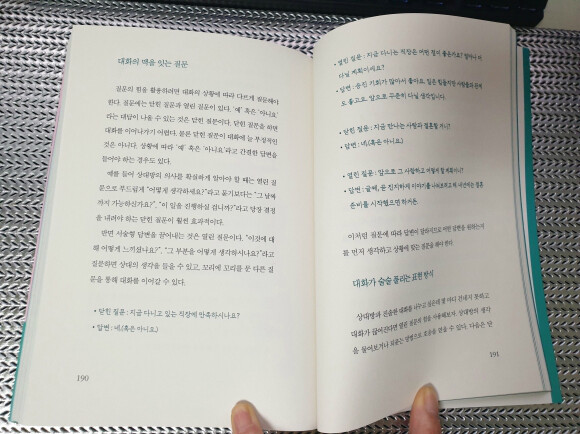 대화의 맥을 잇는 질문
질문의 힘을 활용하려면 대화의 상황에 따라 다르게 질문해야
한다. 질문에는 닫힌 질문과 열린 질문이 있다. '예' 혹은 '아니요'
라는 대답이 나올 수 있는 것은 닫힌 질문이다. 닫힌 질문을 하면
대화를 이어나가기 어렵다. 물론 닫힌 질문이 대화에 늘 부정적인
것은 아니다. 상황에 따라 '예' 혹은 '아니요'라고 간결한 답변을
들어야 하는 경우도 있다.
예를 들어 상대방의 의사를 확실하게 알아야 할 때는 열린 질
문으로 부드럽게 "어떻게 생각하세요?"라고 묻기보다는 "그 날짜
까지 가능하신가요?", "이 일을 진행하실 겁니까?"라고 당장 결정
을 내려야 하는 닫힌 질문이 훨씬 효과적이다.
반면 서술형 답변을 끌어내는 것은 열린 질문이다. "이것에 대
해 어떻게 느끼셨나요?", "그 부분을 어떻게 생각하시나요?"라고
질문하면 상대의 생각을 들을 수 있고, 꼬리에 꼬리를 문 다른 질
문을 통해 대화를 이어갈 수 있다.
• 닫힌 질문 : 지금 다니고 있는 직장에 만족하시나요?
• 답변 : 네.(혹은 아니요.)
190
• 열린 질문 : 지금 다니는 직장은 어떤 점이 좋은가요? 얼마나 더
다닐 계획이세요?
• 답변 : 승진 기회가 많아서 좋아요. 일은 힘들지만 사람들과 관계
도 좋고요. 앞으로 꾸준히 다닐 생각입니다.
• 닫힌 질문 : 지금 만나는 사람과 결혼할 거니?
• 답변 : 네.(혹은 아니요.)
• 열린 질문 : 앞으로 그 사람하고 어떻게 할 계획이니?
• 답변 : 글쎄, 좀 진지하게 이야기를 나눠보려고 해. 내년에는 결혼
준비를 시작했으면 하거든.
이처럼 질문에 따라 답변이 달라지므로 어떤 답변을 원하는지
를 먼저 생각하고 상황에 맞는 질문을 해야 한다.
대화가 술술 풀리는 표현 방식
상대방과 진솔한 대화를 나누고 싶은데 몇 마디 건네지 못하고
대화가 끊어진다면 열린 질문의 힘을 사용해보자. 상대방의 생각
을 물어보거나 질문는 방법으로 호응을 얻을 수 있다. 다음은 단
191